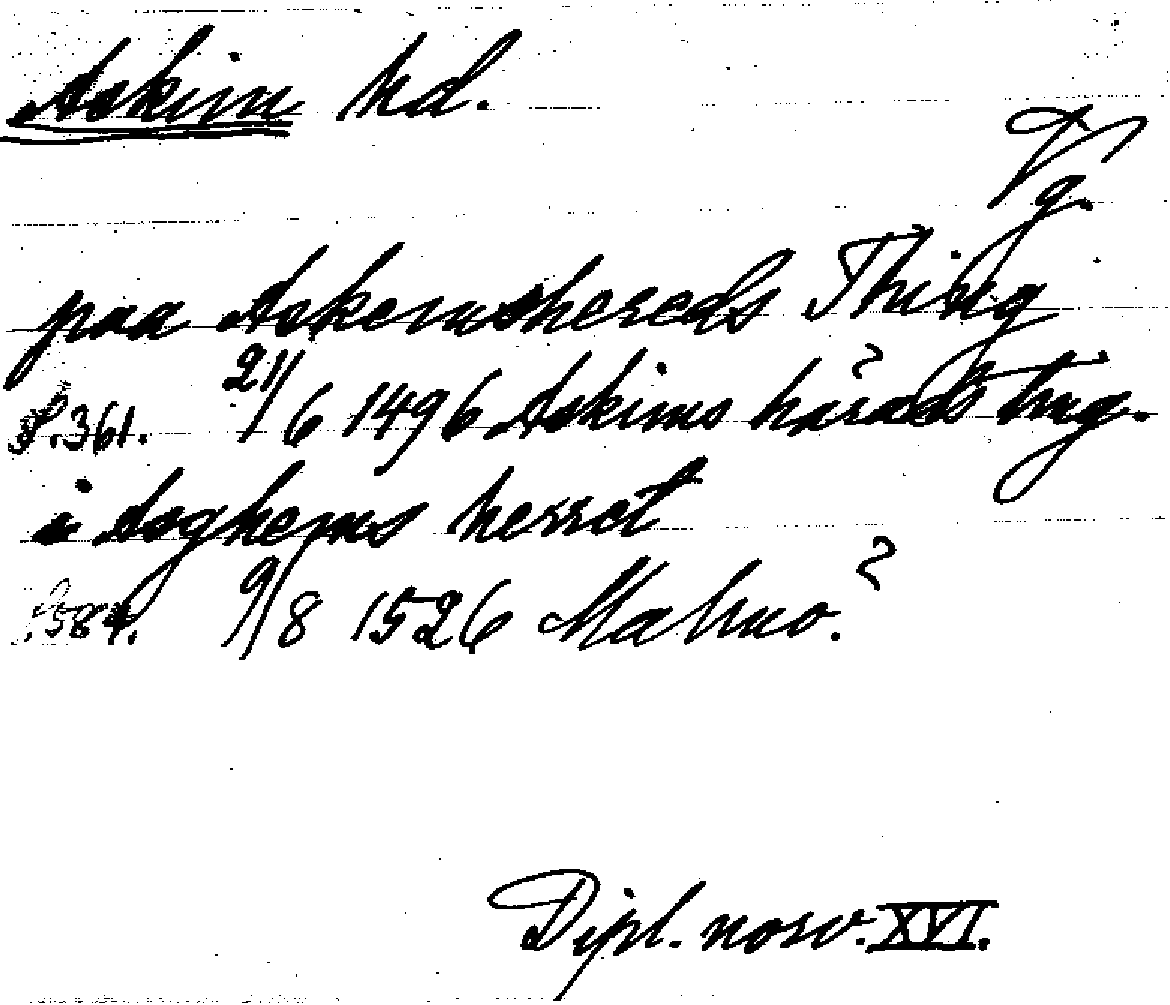 Askim hd.
Vg.
paa Askemshereds Thing
S. 361. 21/6 1496 Askims härads ting.
i Asghems herret
S. 584. 9/8 1526 Malmö?
Dipl. norv. XVI.